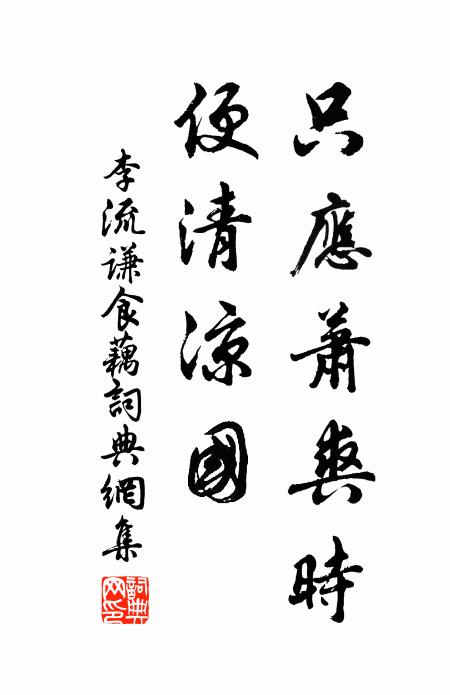 只應蕭爽時
便清涼國
李流謙食藕詞典網集
詞典网印